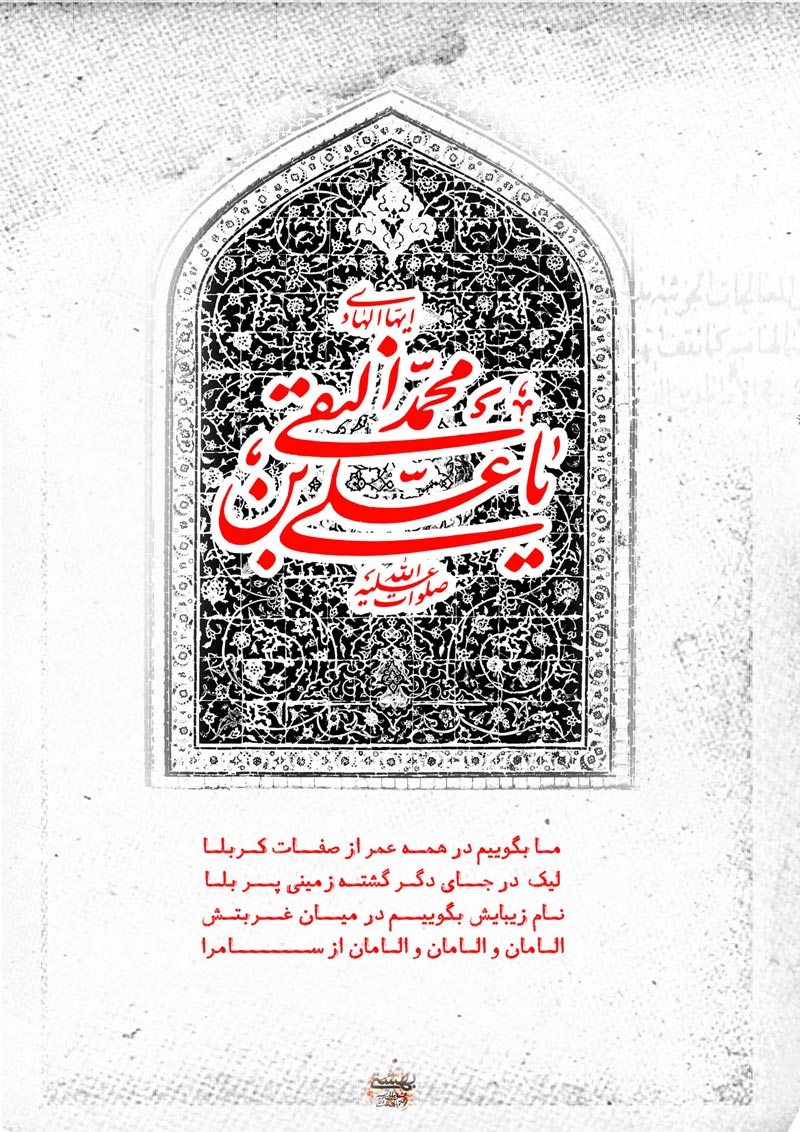 یا علی بن
محمّد النقی
ایها الهادی
صلوات الله علیه
ما بگوییم در همه عمر از صفات کربلا
لیک در جای دگر گشته زمینی پر بلا
نام زیبایش بگوییم در میان غربتش
الامان و الامان و الامان از سامرا